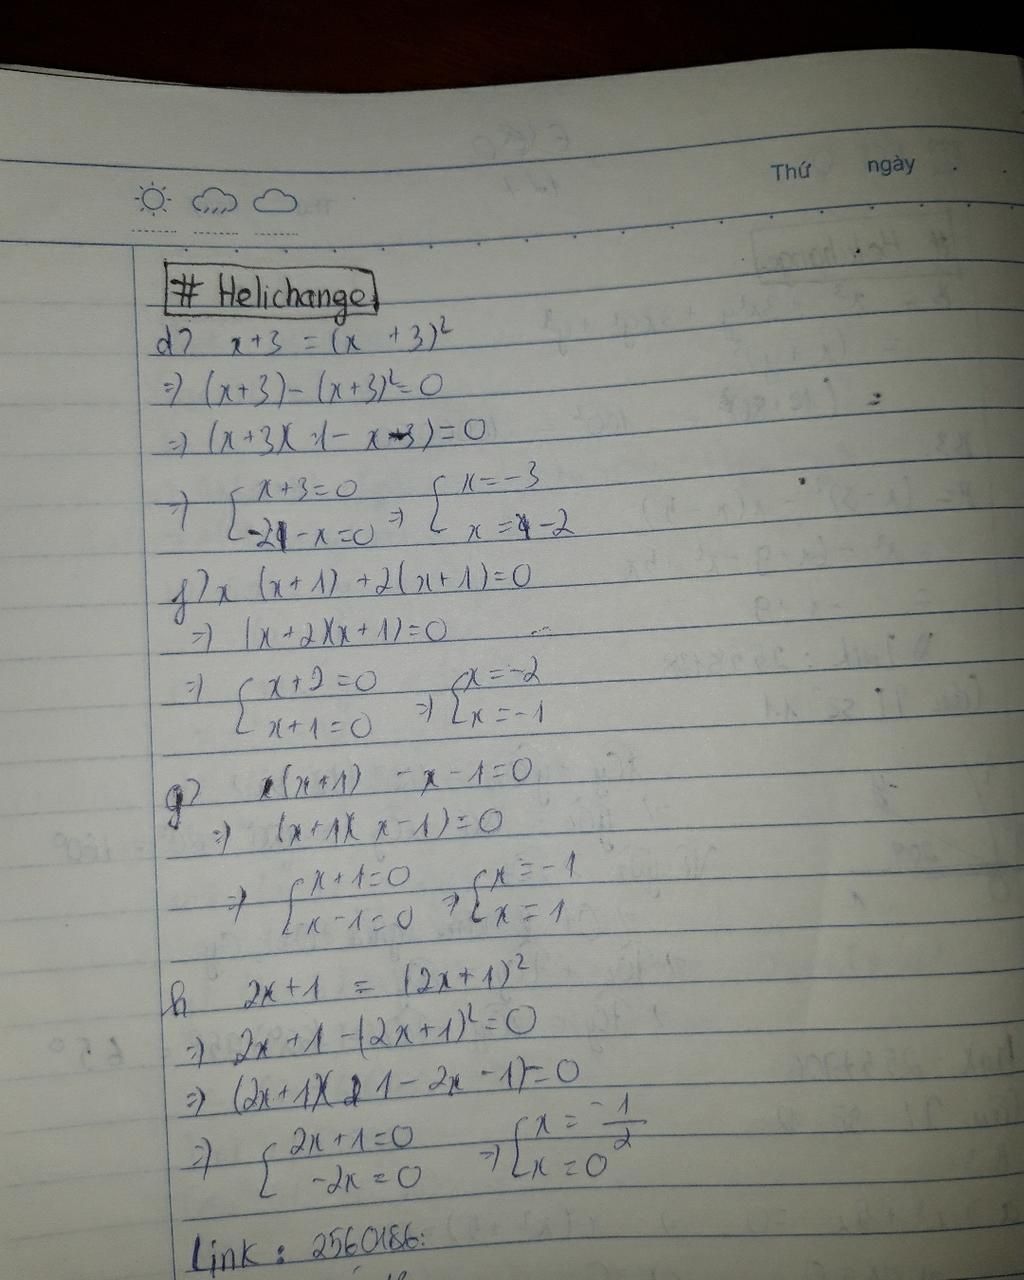 Thứ ngày
# Helichange
d) x+3 = (x +3)²
=> (x+3) - (x+3)² = 0
=> (x+3)(1 - x - 3) = 0
=> { x+3=0 => { x = -3
-2 - x = 0 x = -2
f) x (x+1) + 2(x+1) = 0
=> (x+2)(x+1) = 0
=> { x+2 = 0 => { x = -2
x+1 = 0 x = -1
g) x(x+1) - x - 1 = 0
=> (x+1)(x-1) = 0
=> { x+1=0 => { x = -1
x-1 = 0 x = 1
h 2x+1 = (2x+1)²
=> 2x+1 - (2x+1)² = 0
=> (2x+1)(1 - 2x - 1) = 0
=> { 2x+1=0 => { x = -1/2
-2x = 0 x = 0
Link : 2560186: